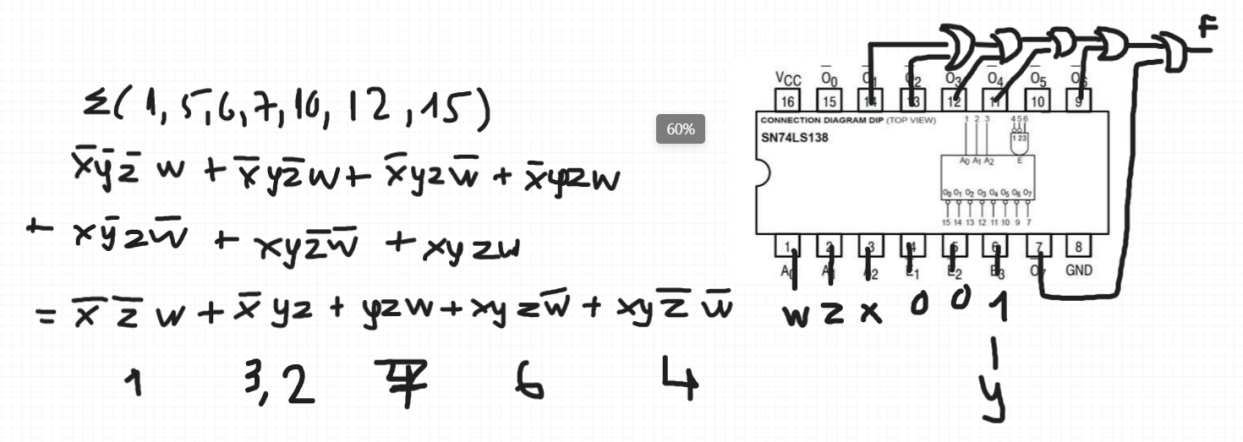 Σ(1,5,6,7,10,12,15)
x̄ȳz̄w + x̄yz̄w + x̄yzw̄ + x̄yzw
+ xȳzw̄ + xyz̄w̄ + xyzw
= x̄z̄w + x̄yz + yzw + xyzw̄ + xyz̄w̄
1 3,2 7 6 4
60%
F
VCC Ō0 Ō1 Ō2 Ō3 Ō4 Ō5 Ō6
16 15 14 13 12 11 10 9
CONNECTION DIAGRAM DIP (TOP VIEW)
SN74LS138
1 2 3 4 5 6
1 2 3
A0 A1 A2 E
O0 O1 O2 O3 O4 O5 O6 O7
15 14 13 12 11 10 9 7
1 2 3 4 5 6 7 8
A0 A1 A2 E1 E2 E3 Ō7 GND
w z x 0 0 1
y